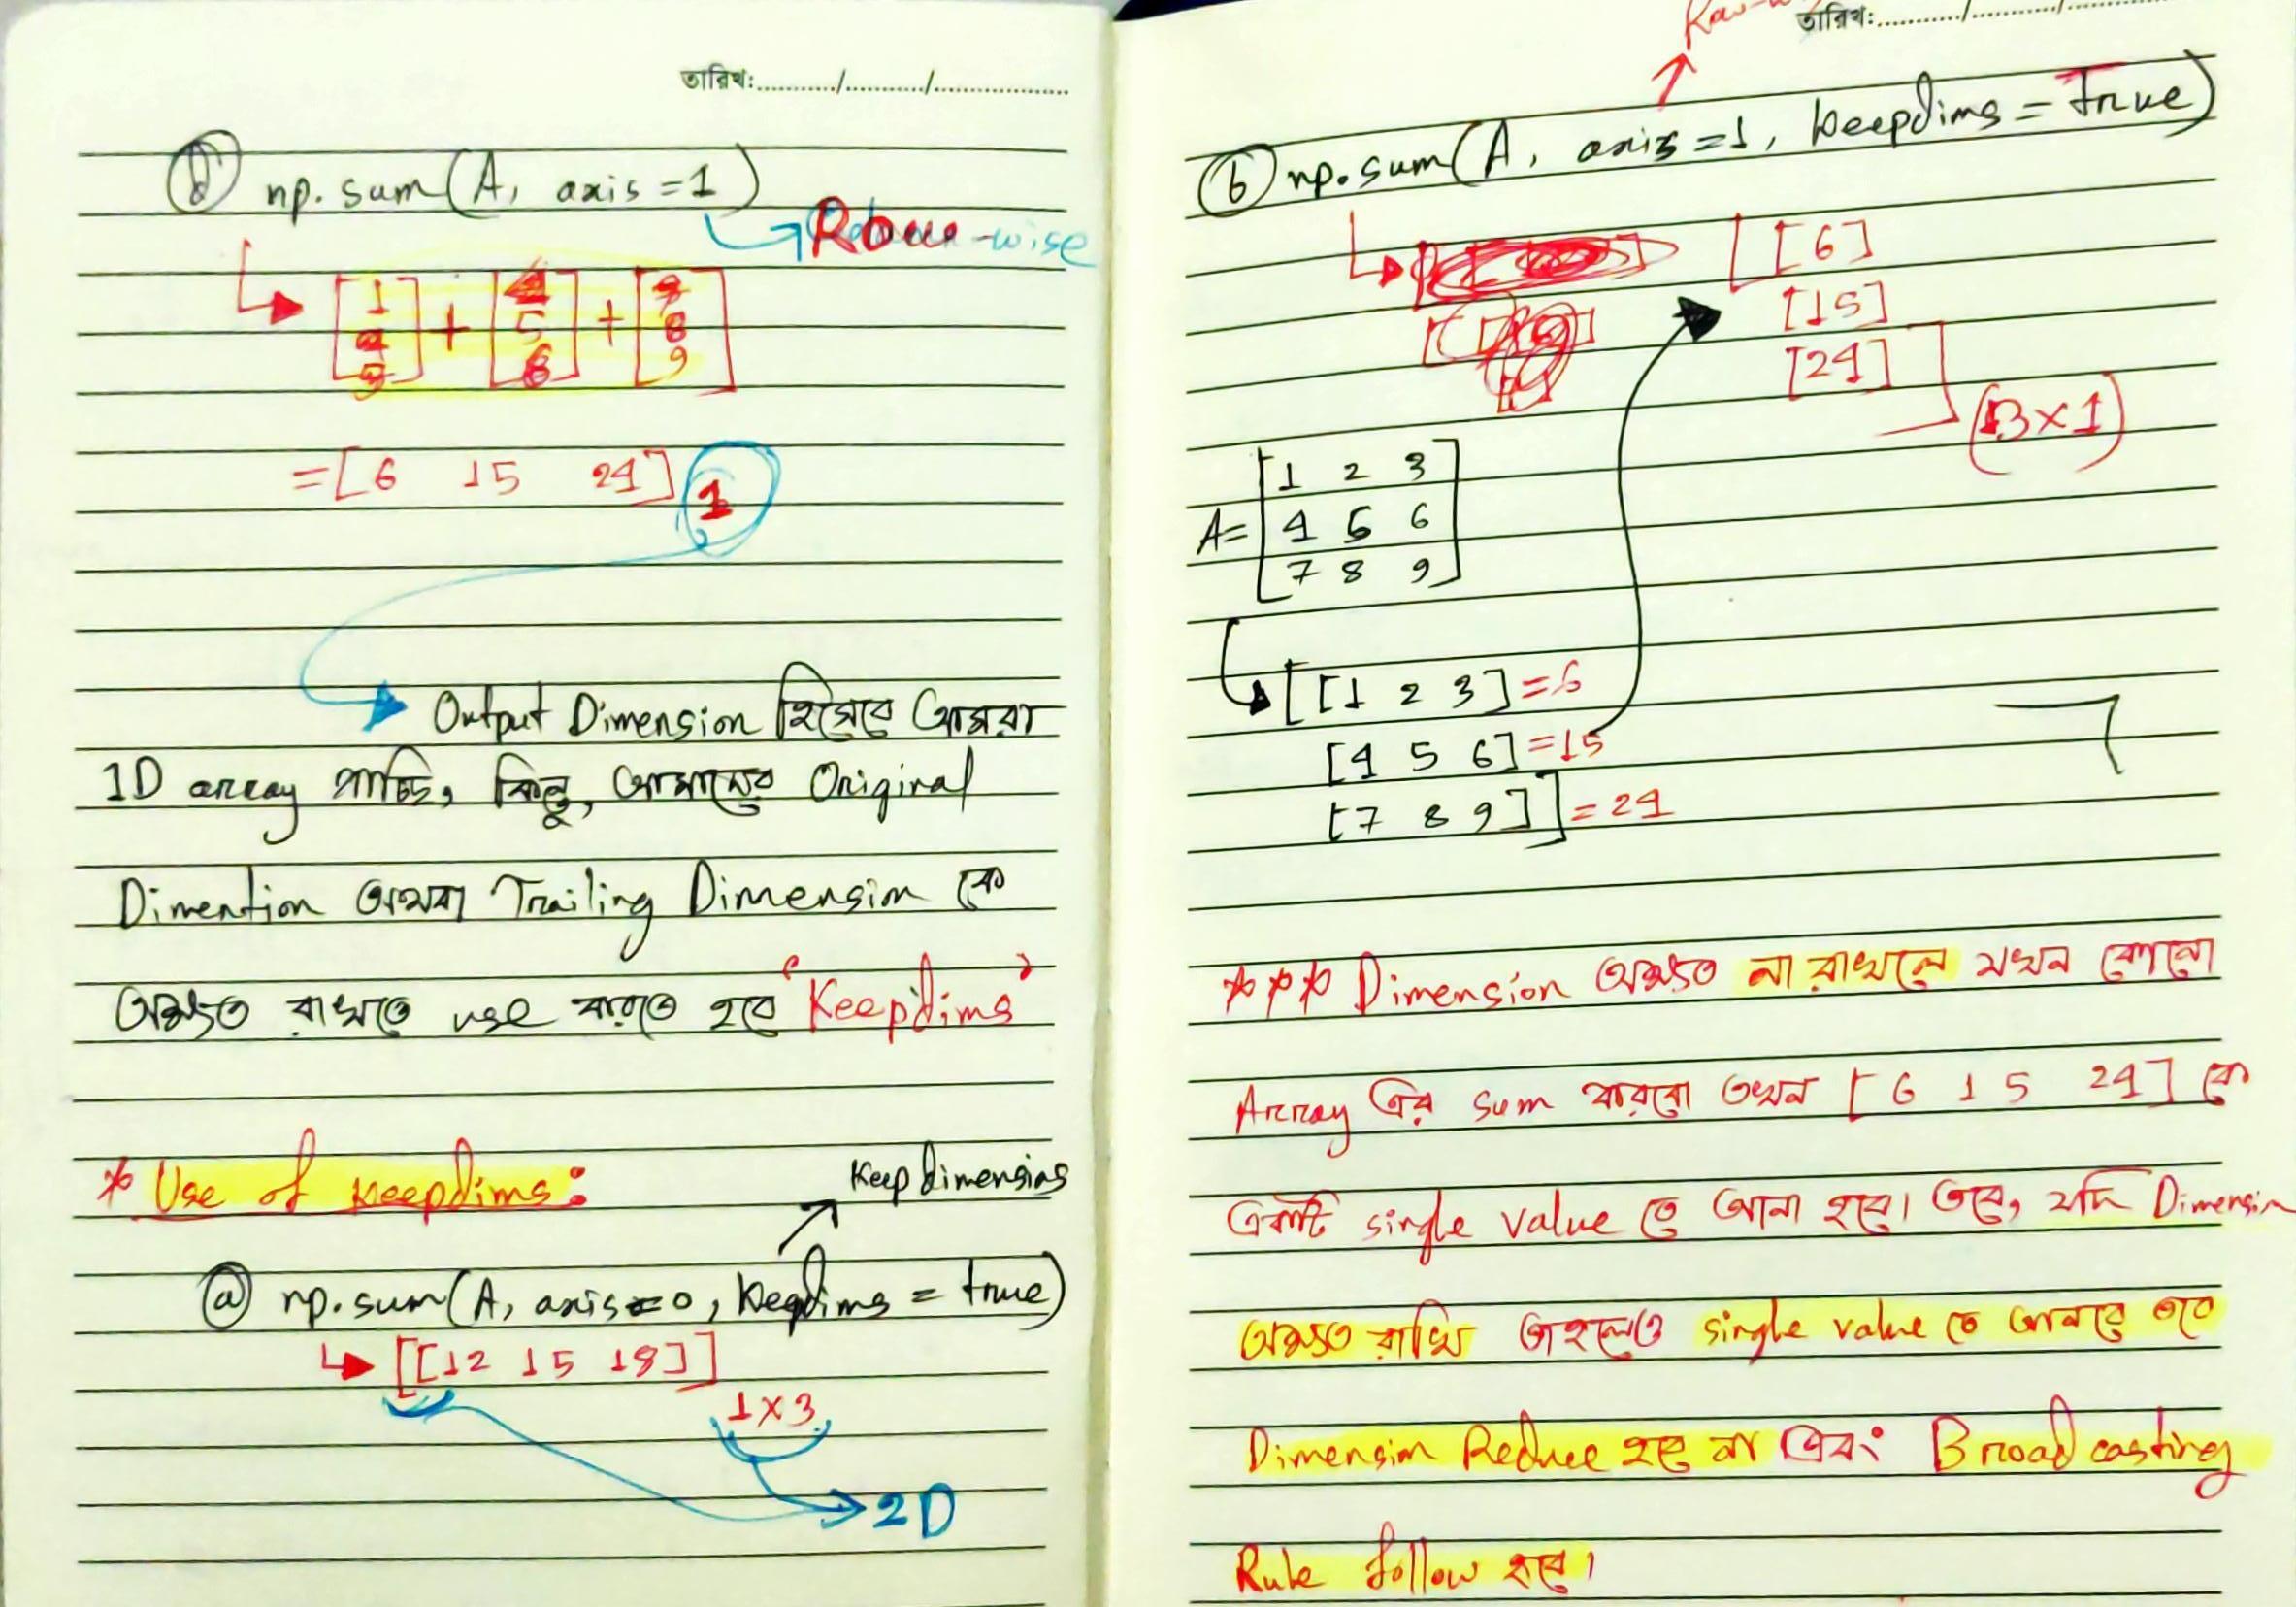 তারিখ:............/............/....................
ⓓ np.sum(A, axis=1)
Row-wise
[1 2 3] + [4 5 6] + [7 8 9]
=[6 15 24] 1
Output Dimension হিসেবে আমরা
1D array পাচ্ছি, কিন্তু, আমাদের Original
Dimention অথবা Trailing Dimension কে
অক্ষত রাখতে use করতে হবে 'Keepdims'
* Use of keepdims:
Keep dimensions
ⓐ np.sum(A, axis=0, keepdims = true)
[[12 15 18]]
1×3
2D
তারিখ:............/............/
ⓑ np.sum(A, axis=1, keepdims = true)
[[6]
[15]
[24]]
(3×1)
A= [1 2 3
4 5 6
7 8 9]
[[1 2 3] =6
[4 5 6] =15
[7 8 9]] =24
*** Dimension অক্ষত না রাখলে যখন কোনো
Array এর sum করবো তখন [6 15 24] কে
একটি single value তে আনা হবে। তবে, যদি Dimension
অক্ষত রাখি তাহলেও single value তে আনবে তবে
Dimension Reduce হবে না এবং Broadcasting
Rule follow হবে।